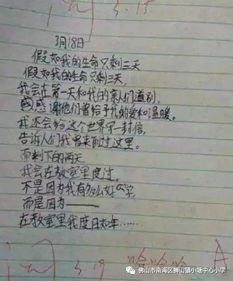 3.15
3月18日
假如我的生命只剩三天
假如我的生命只剩三天
我会在第一天和我的亲人们道别,
感谢他们曾给予我的爱和温暖。
我还会给这个世界一封信,
告诉人们我曾来到过这里。
而剩下的两天
我会在教室里度过。
不是因为我有多么好学
而是因为——
在教室里我度日如年……
3.19
哈哈哈
A
佛山市南海区狮山镇小塘中心小学